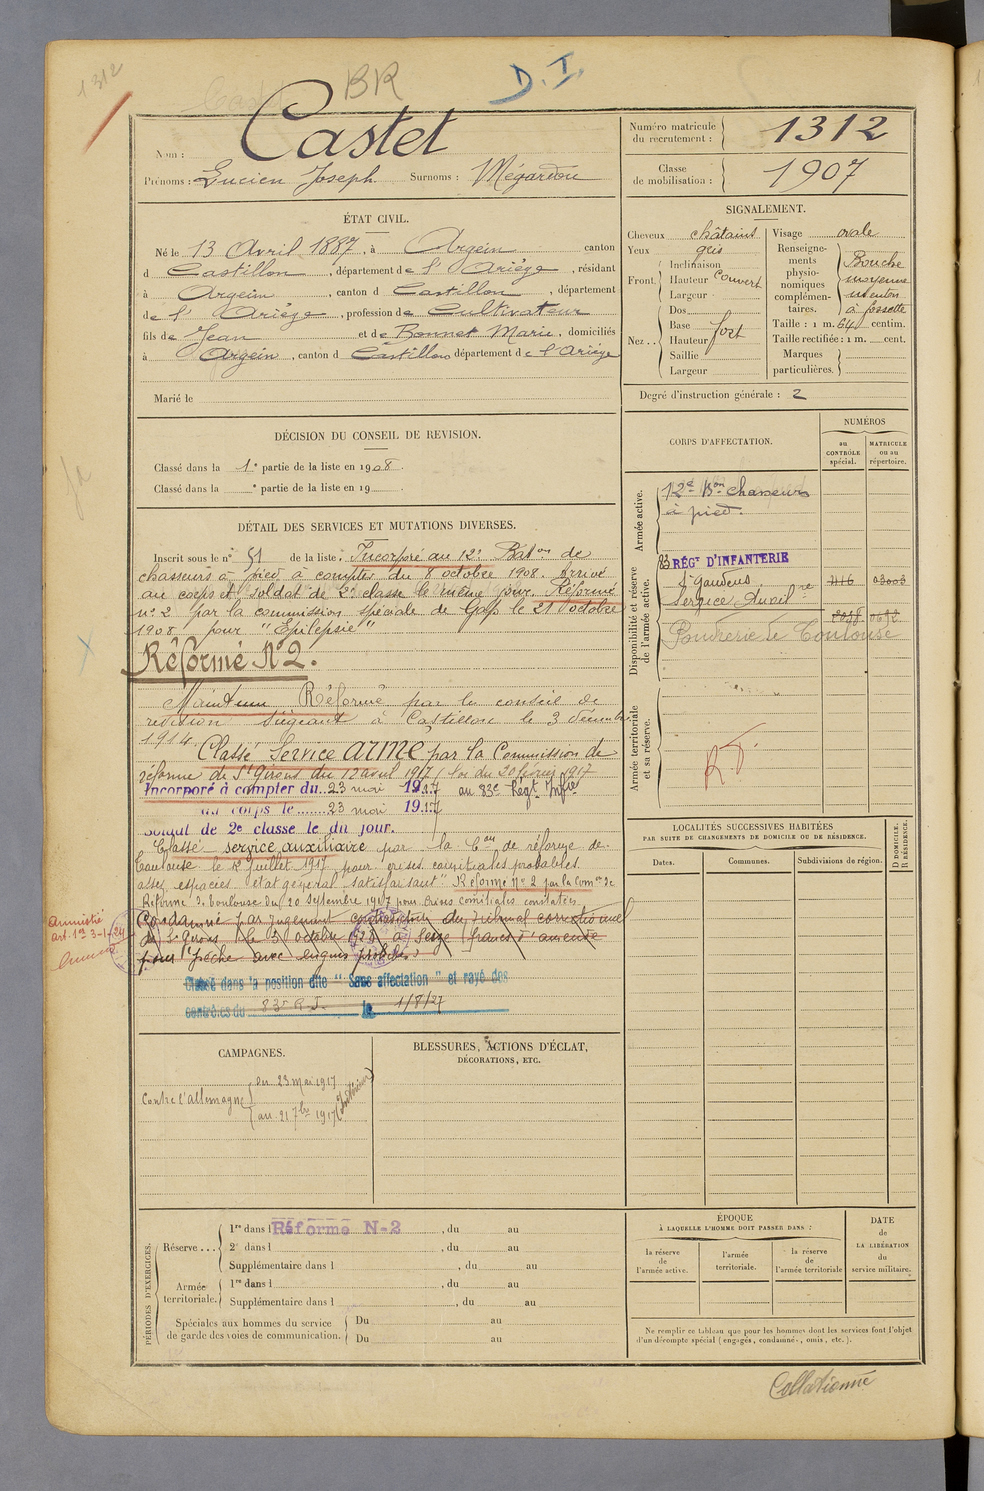 1312
BR
D.I.
Nom : Castet
Prénoms : Lucien Joseph Surnoms : Mégardou
Numéro matricule du recrutement : 1312
Classe de mobilisation : 1907
ÉTAT CIVIL.
Né le 13 Avril 1887, à Argein canton
d Castillon, département de l'Ariège, résidant
à Argein, canton d Castillon, département
de l'Ariège, profession de Cultivateur
fils de Jean et de Bonnet Marie, domiciliés
à Argein, canton d Castillon département de l'Ariège
Marié le
SIGNALEMENT.
Cheveux châtains
Yeux gris
Front. Inclinaison
Hauteur couvert
Largeur
Nez.. Dos
Base fort
Hauteur
Saillie
Largeur
Visage ovale
Renseignements physionomiques complémentaires. Bouche
moyenne
menton
à fossette
Taille : 1 m. 64 centim.
Taille rectifiée : 1 m. cent.
Marques particulières.
Degré d'instruction générale : 2
DÉCISION DU CONSEIL DE REVISION.
Classé dans la 1e partie de la liste en 1908.
Classé dans la e partie de la liste en 19
DÉTAIL DES SERVICES ET MUTATIONS DIVERSES.
Inscrit sous le n° 51 de la liste. Incorporé au 12e Baton de
chasseurs à pied à compter du 8 octobre 1908. Arrivé
au corps et soldat de 2e classe le même jour. Réformé
n° 2 par la commission spéciale de Gap le 21 octobre
1908 pour "Epilepsie"
Réformé N°2.
Maintenu Réformé par le conseil de
revision siégeant à Castillon le 3 décembre
1914. Classé Service armé par la Commission de
réforme de St Girons du 12 avril 1917 (loi du 20 février 1917
Incorporé à compter du 23 mai 1917 au 83e Régt Infie
au corps le 23 mai 1917
Soldat de 2e classe le dit jour.
Classé service auxiliaire par la Con de réforme de
Toulouse le 12 juillet 1917 pour crises comitiales probables
assez espacées état général satisfaisant" Réformé n° 2 par la Comon de
Réforme de Toulouse du 20 septembre 1917 pour crises comitiales constatées
Condamné par jugement contradictoire du Tribunal correctionnel
de St Girons le 3 octobre à seize francs d'amende
pour pêche avec engins prohibés
Amnistié
art. 1er 3-1-24
Classé dans la position dite "Sans affectation" et rayé des
contrôles du 83e R.I. le 1/8/27
CORPS D'AFFECTATION.
NUMÉROS
au CONTRÔLE spécial.
MATRICULE ou au répertoire.
Armée active.
12e Bon chasseurs
à pied.
Disponibilité et réserve de l'armée active.
83 RÉGT D'INFANTERIE
St Gaudens
Service Auxilre
Poudrerie de Toulouse
Armée territoriale et sa réserve.
LOCALITÉS SUCCESSIVES HABITÉES
PAR SUITE DE CHANGEMENTS DE DOMICILE OU DE RÉSIDENCE.
Dates.
Communes.
Subdivisions de région.
D DOMICILE. R RÉSIDENCE.
CAMPAGNES.
Contre l'Allemagne
du 23 mai 1917
au 21 7bre 1917
(Intérieur)
BLESSURES, ACTIONS D'ÉCLAT,
DÉCORATIONS, ETC.
PÉRIODES D'EXERCICES.
Réserve... 1re dans l Réformé N-2, du au
2e dans l , du au
Supplémentaire dans l , du au
Armée territoriale. 1re dans l , du au
Supplémentaire dans l , du au
Spéciales aux hommes du service
de garde des voies de communication. Du au
Du au
ÉPOQUE
À LAQUELLE L'HOMME DOIT PASSER DANS :
la réserve de l'armée active.
l'armée territoriale.
la réserve de l'armée territoriale
DATE de LA LIBÉRATION du service militaire.
Ne remplir ce tableau que pour les hommes dont les services font l'objet
d'un décompte spécial (engagés, condamnés, omis, etc.).
Collationné